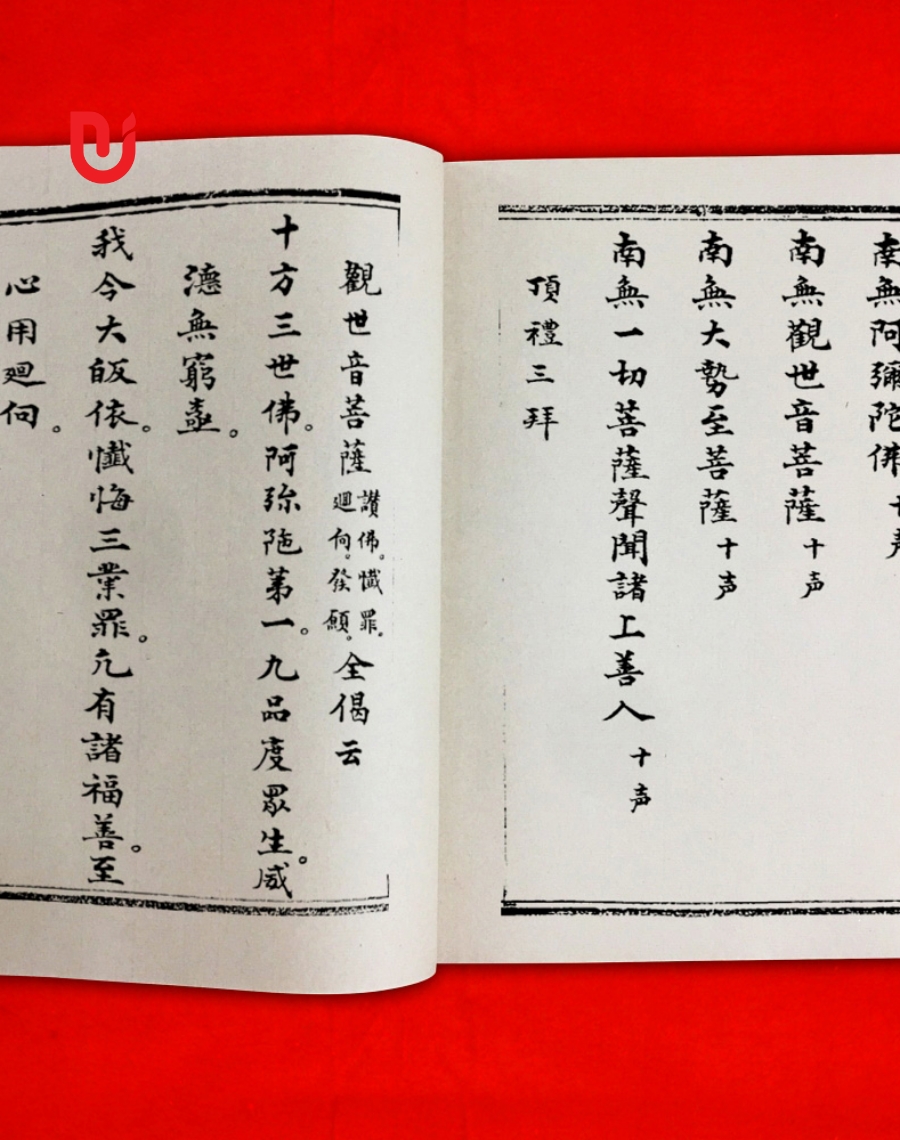 南無阿彌陀佛 十声
南無觀世音菩薩 十声
南無大勢至菩薩 十声
南無一切菩薩聲聞諸上善人 十声
頂禮三拜
觀世音菩薩 讃佛。懺罪。廻向。發願。 全偈云
十方三世佛。阿弥陁第一。九品度眾生。威
德無窮盡。
我今大皈依。懺悔三業罪。凢有諸福善。至
心用廻向。